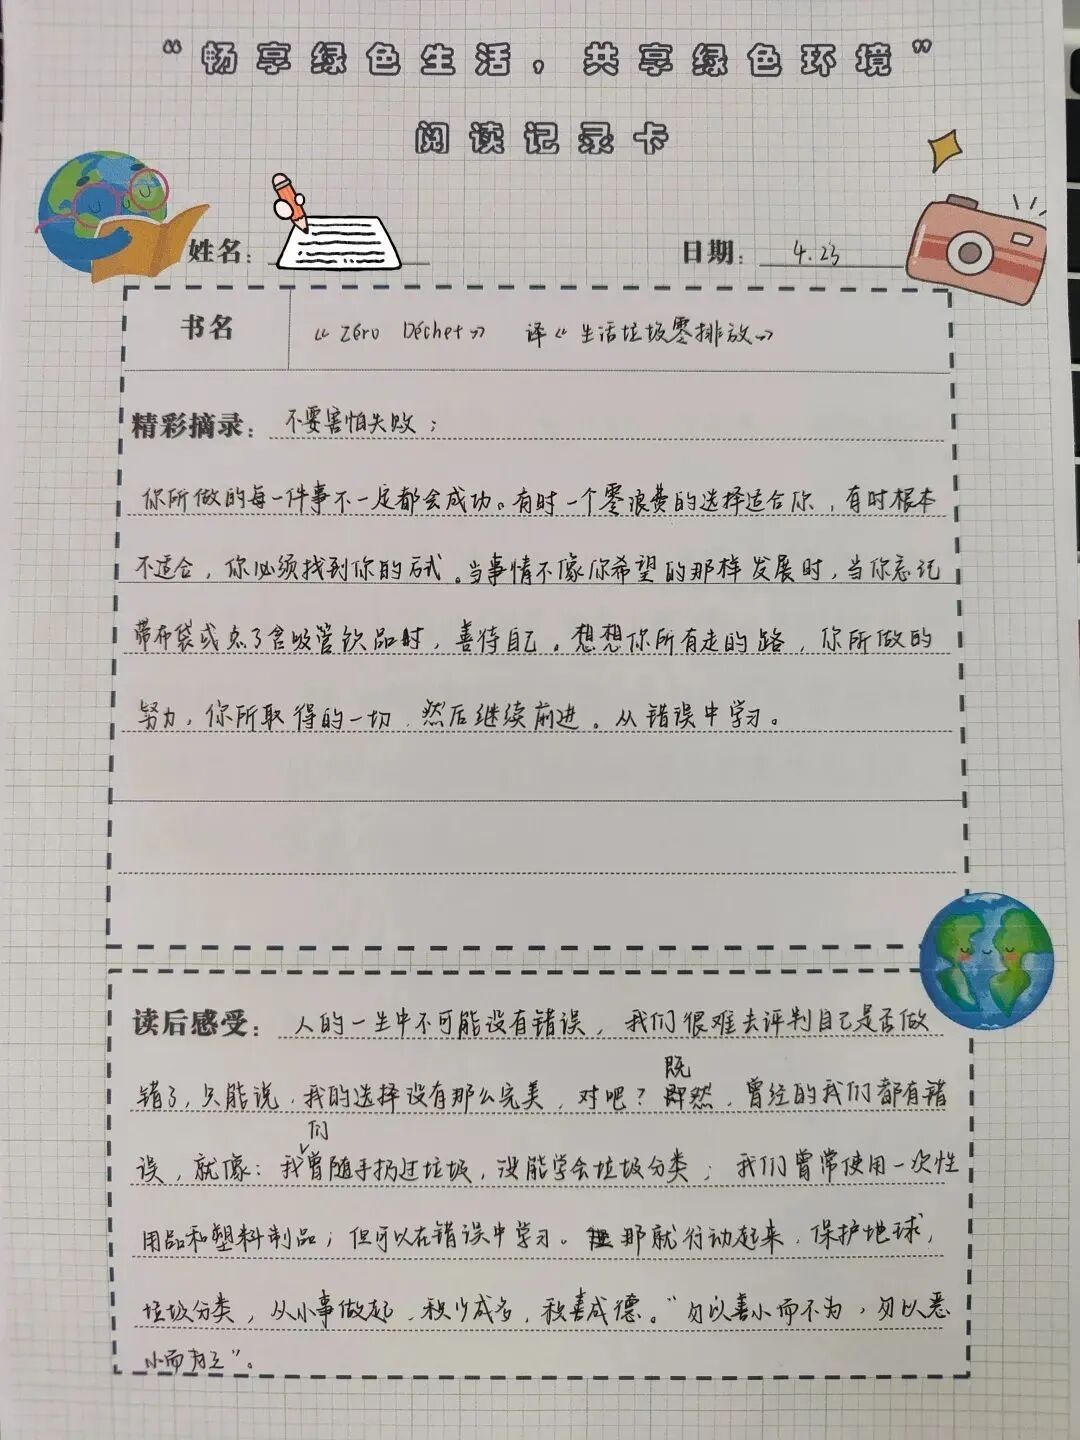 “畅享绿色生活，共享绿色环境”
阅读记录卡
姓名：
日期：4.23
书名 《Zéro Déchet》 译《生活垃圾零排放》
精彩摘录：不要害怕失败；
你所做的每一件事不一定都会成功。有时一个零浪费的选择适合你，有时根本
不适合，你必须找到你的方式。当事情不像你希望的那样发展时，当你忘记
带布袋或点了含吸管饮品时，善待自己。想想你所有走的路，你所做的
努力，你所取得的一切，然后继续前进。从错误中学习。
读后感受：人的一生中不可能没有错误，我们很难去评判自己是否做
错了，只能说，我的选择没有那么完美，对吧？既然，曾经的我们都有错
误，就像：我们曾随手扔过垃圾，没能学会垃圾分类；我们曾常使用一次性
用品和塑料制品；但可以在错误中学习。那就行动起来，保护地球，
垃圾分类，从小事做起，积少成多，积善成德。“勿以善小而不为，勿以恶
小而为之”。